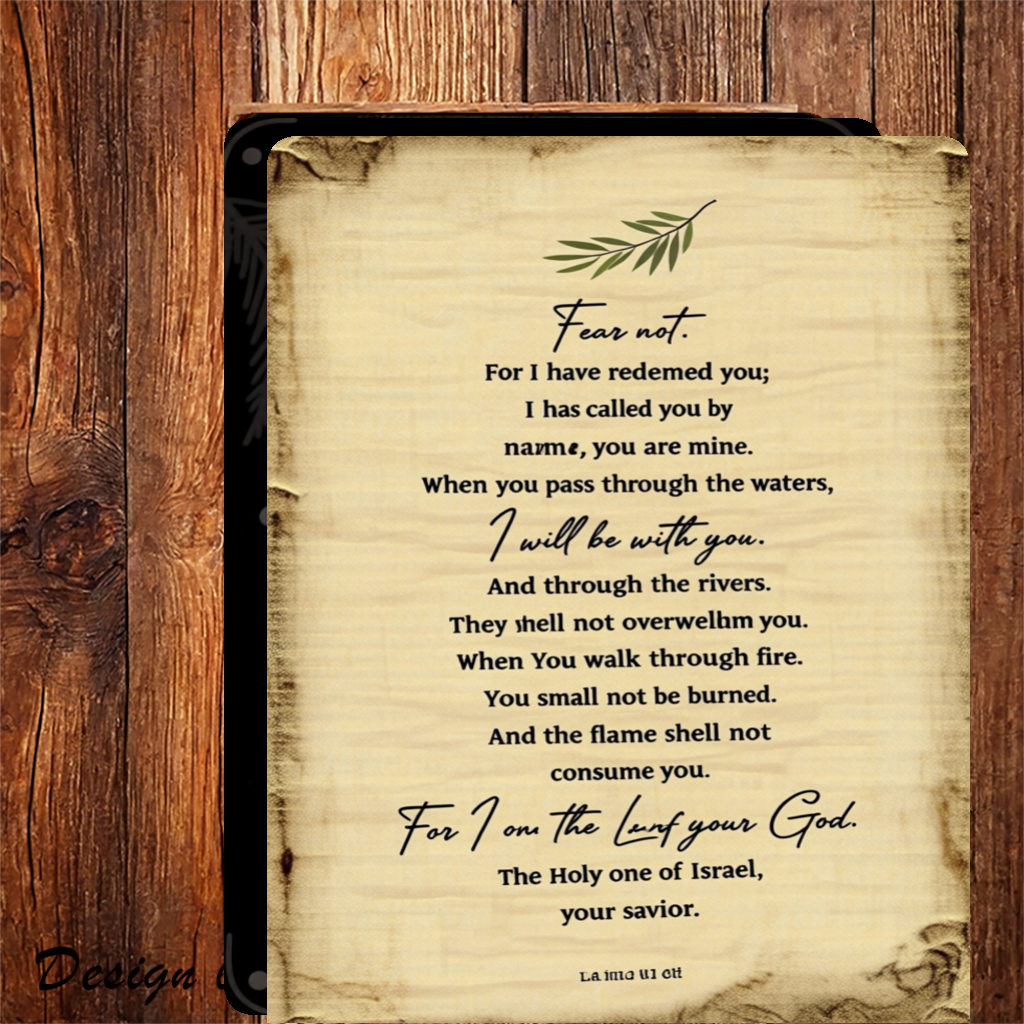 Fear not.
For I have redemed you;
I has called you by
name, you are mine.
When you pass through the waters,
I will be with you.
And through the rivers.
They shell not overwelhm you.
When You walk through fire.
You small not be burned.
And the flame shell not
consume you.
For I om the your God.
The Holy one of Israel,
your savior.
Design